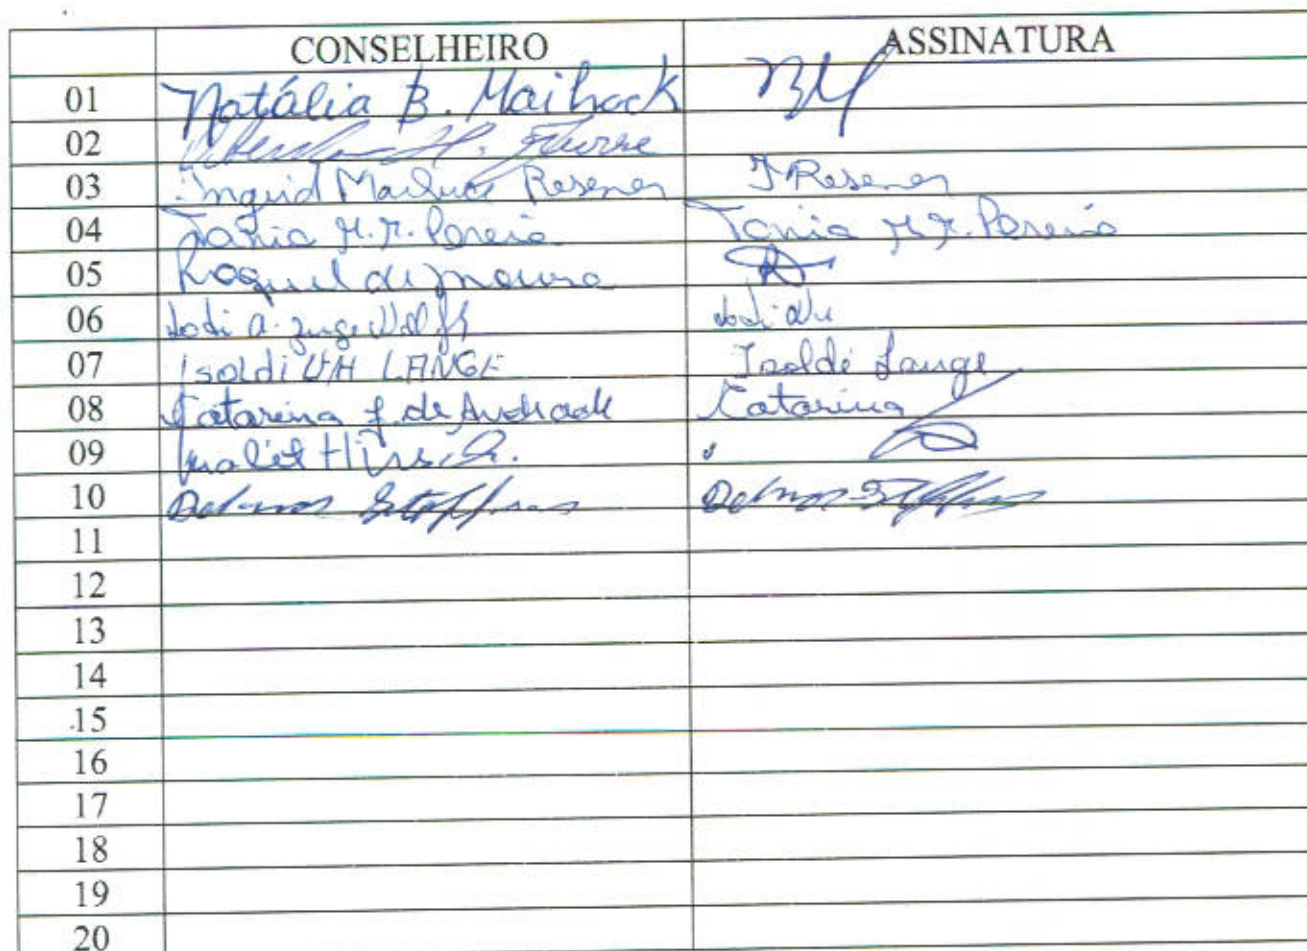 CONSELHEIRO ASSINATURA
01 Natália B. Maihack
02 H.
03 Ingrid Marluce Resener I Resener
04 Tania M. R. Pereira Tania M. R. Pereira
05 Raquel de Moura
06 Lodi A.
07 Isoldi LANGE Isoldi Lange
08 Catarina f. de Andrade Catarina
09 Hirsch.
10 Delmar Steffens Delmar Steffens
11
12
13
14
15
16
17
18
19
20